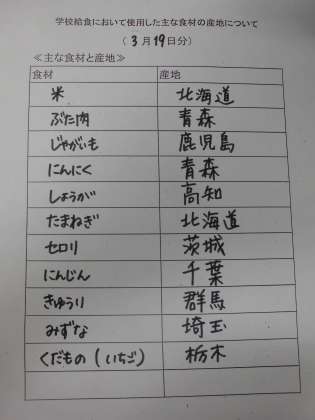 学校給食において使用した主な食材の産地について
(3月19日分)
≪主な食材と産地≫
食材 産地
米 北海道
ぶた肉 青森
じゃがいも 鹿児島
にんにく 青森
しょうが 高知
たまねぎ 北海道
セロリ 茨城
にんじん 千葉
きゅうり 群馬
みずな 埼玉
くだもの(いちご) 栃木